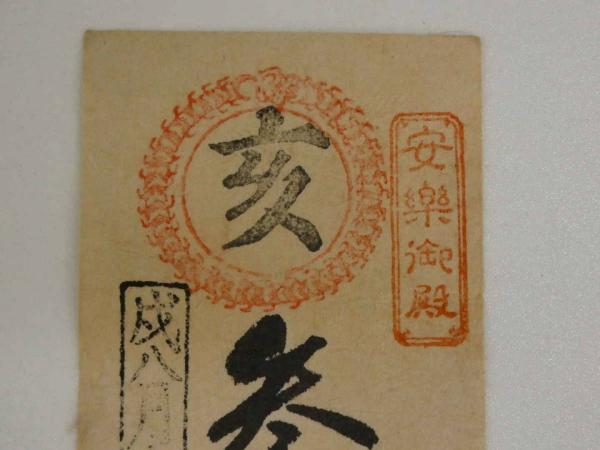 安樂御殿
亥
戌八月